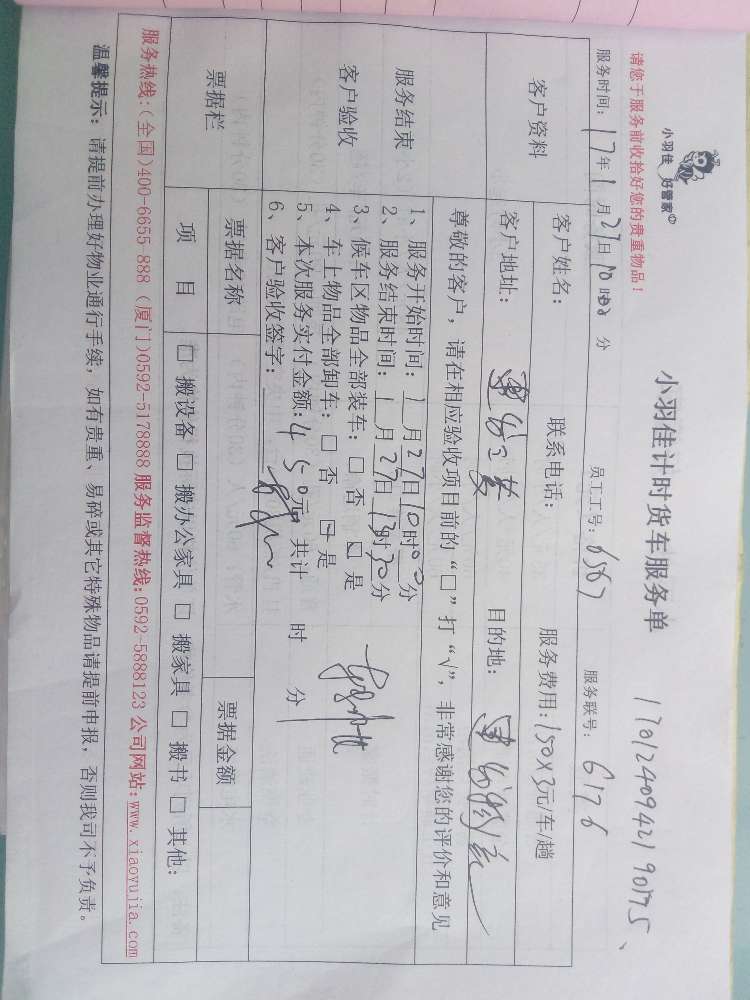 小羽佳 好管家
请您于服务前收拾好您的贵重物品！
小羽佳计时货车服务单
17012409421 90175、
服务时间：17年1月27日10时00分 员工工号：6567 服务联号：6176
客户资料
客户姓名： 联系电话： 服务费用：150X3元/车/趟
客户地址： 目的地：
服务结束
客户验收
尊敬的客户，请在相应验收项目前的“□”打“√”，非常感谢您的评价和意见
1、服务开始时间：1月27日10时00分
2、服务结束时间：1月27日13时30分
3、候车区物品全部装车：□ 否 ☑ 是
4、车上物品全部卸车：□ 否 ☑ 是
5、本次服务实付金额：450元 共计 时 分
6、客户验收签字：
票据栏
票据名称 票据金额
项 目 □ 搬设备 □ 搬办公家具 □ 搬家具 □ 搬书 □ 其他：
服务热线：(全国)400-6655 888 (厦门)0592-5178888 服务监督热线：0592-5888123 公司网站：www.xiaoyujia.com
温馨提示：请提前办理好物业通行手续，如有贵重、易碎或其它特殊物品请提前申报，否则我司不予负责。